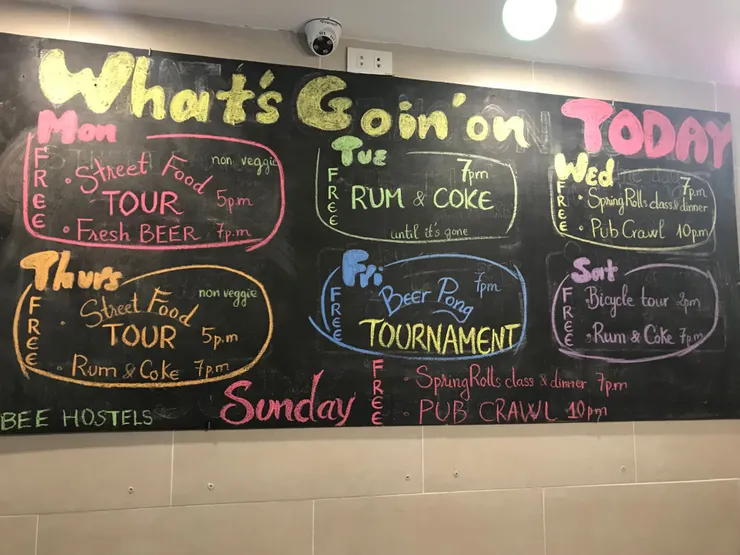 What's Goin' on TODAY
Mon
FREE
• Street Food non veggie
TOUR 5p.m
• Fresh BEER 7p.m
Tue
FR€€
7pm
RUM & COKE
until it's gone
Wed
FR€€
7p.m
• Spring Rolls class & dinner
• Pub Crawl 10pm
Thurs
FREE
• Street Food non veggie
TOUR 5p.m
• Rum & Coke 7p.m
Fri
FREE
Beer Pong 7pm
TOURNAMENT
Sat
FREE
• Bicycle tour 2pm
• Rum & Coke 7p.m
BEE HOSTELS
Sunday
FR€€
• Spring Rolls class & dinner 7pm
• PUB CRAWL 10pm